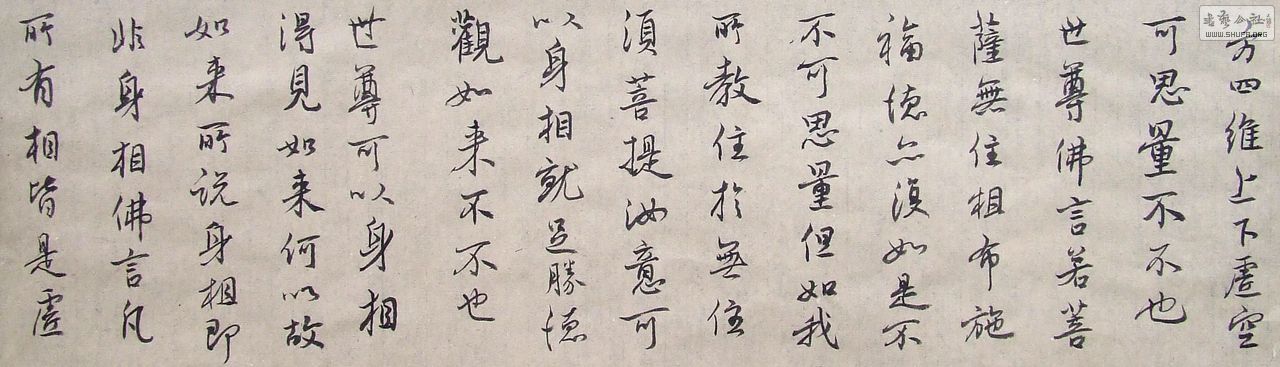 方四維上下虛空
可思量不不也
世尊佛言若菩
薩無住相布施
福德亦復如是不
不可思量但如我
所教住於無住
須菩提汝意可
以身相就足勝德
觀如来不不也
世尊可以身相
得見如来何以故
如来所说身相即
非身相佛言凡
所有相皆是虛
书艺公社
WWW.SHUFA.ORG